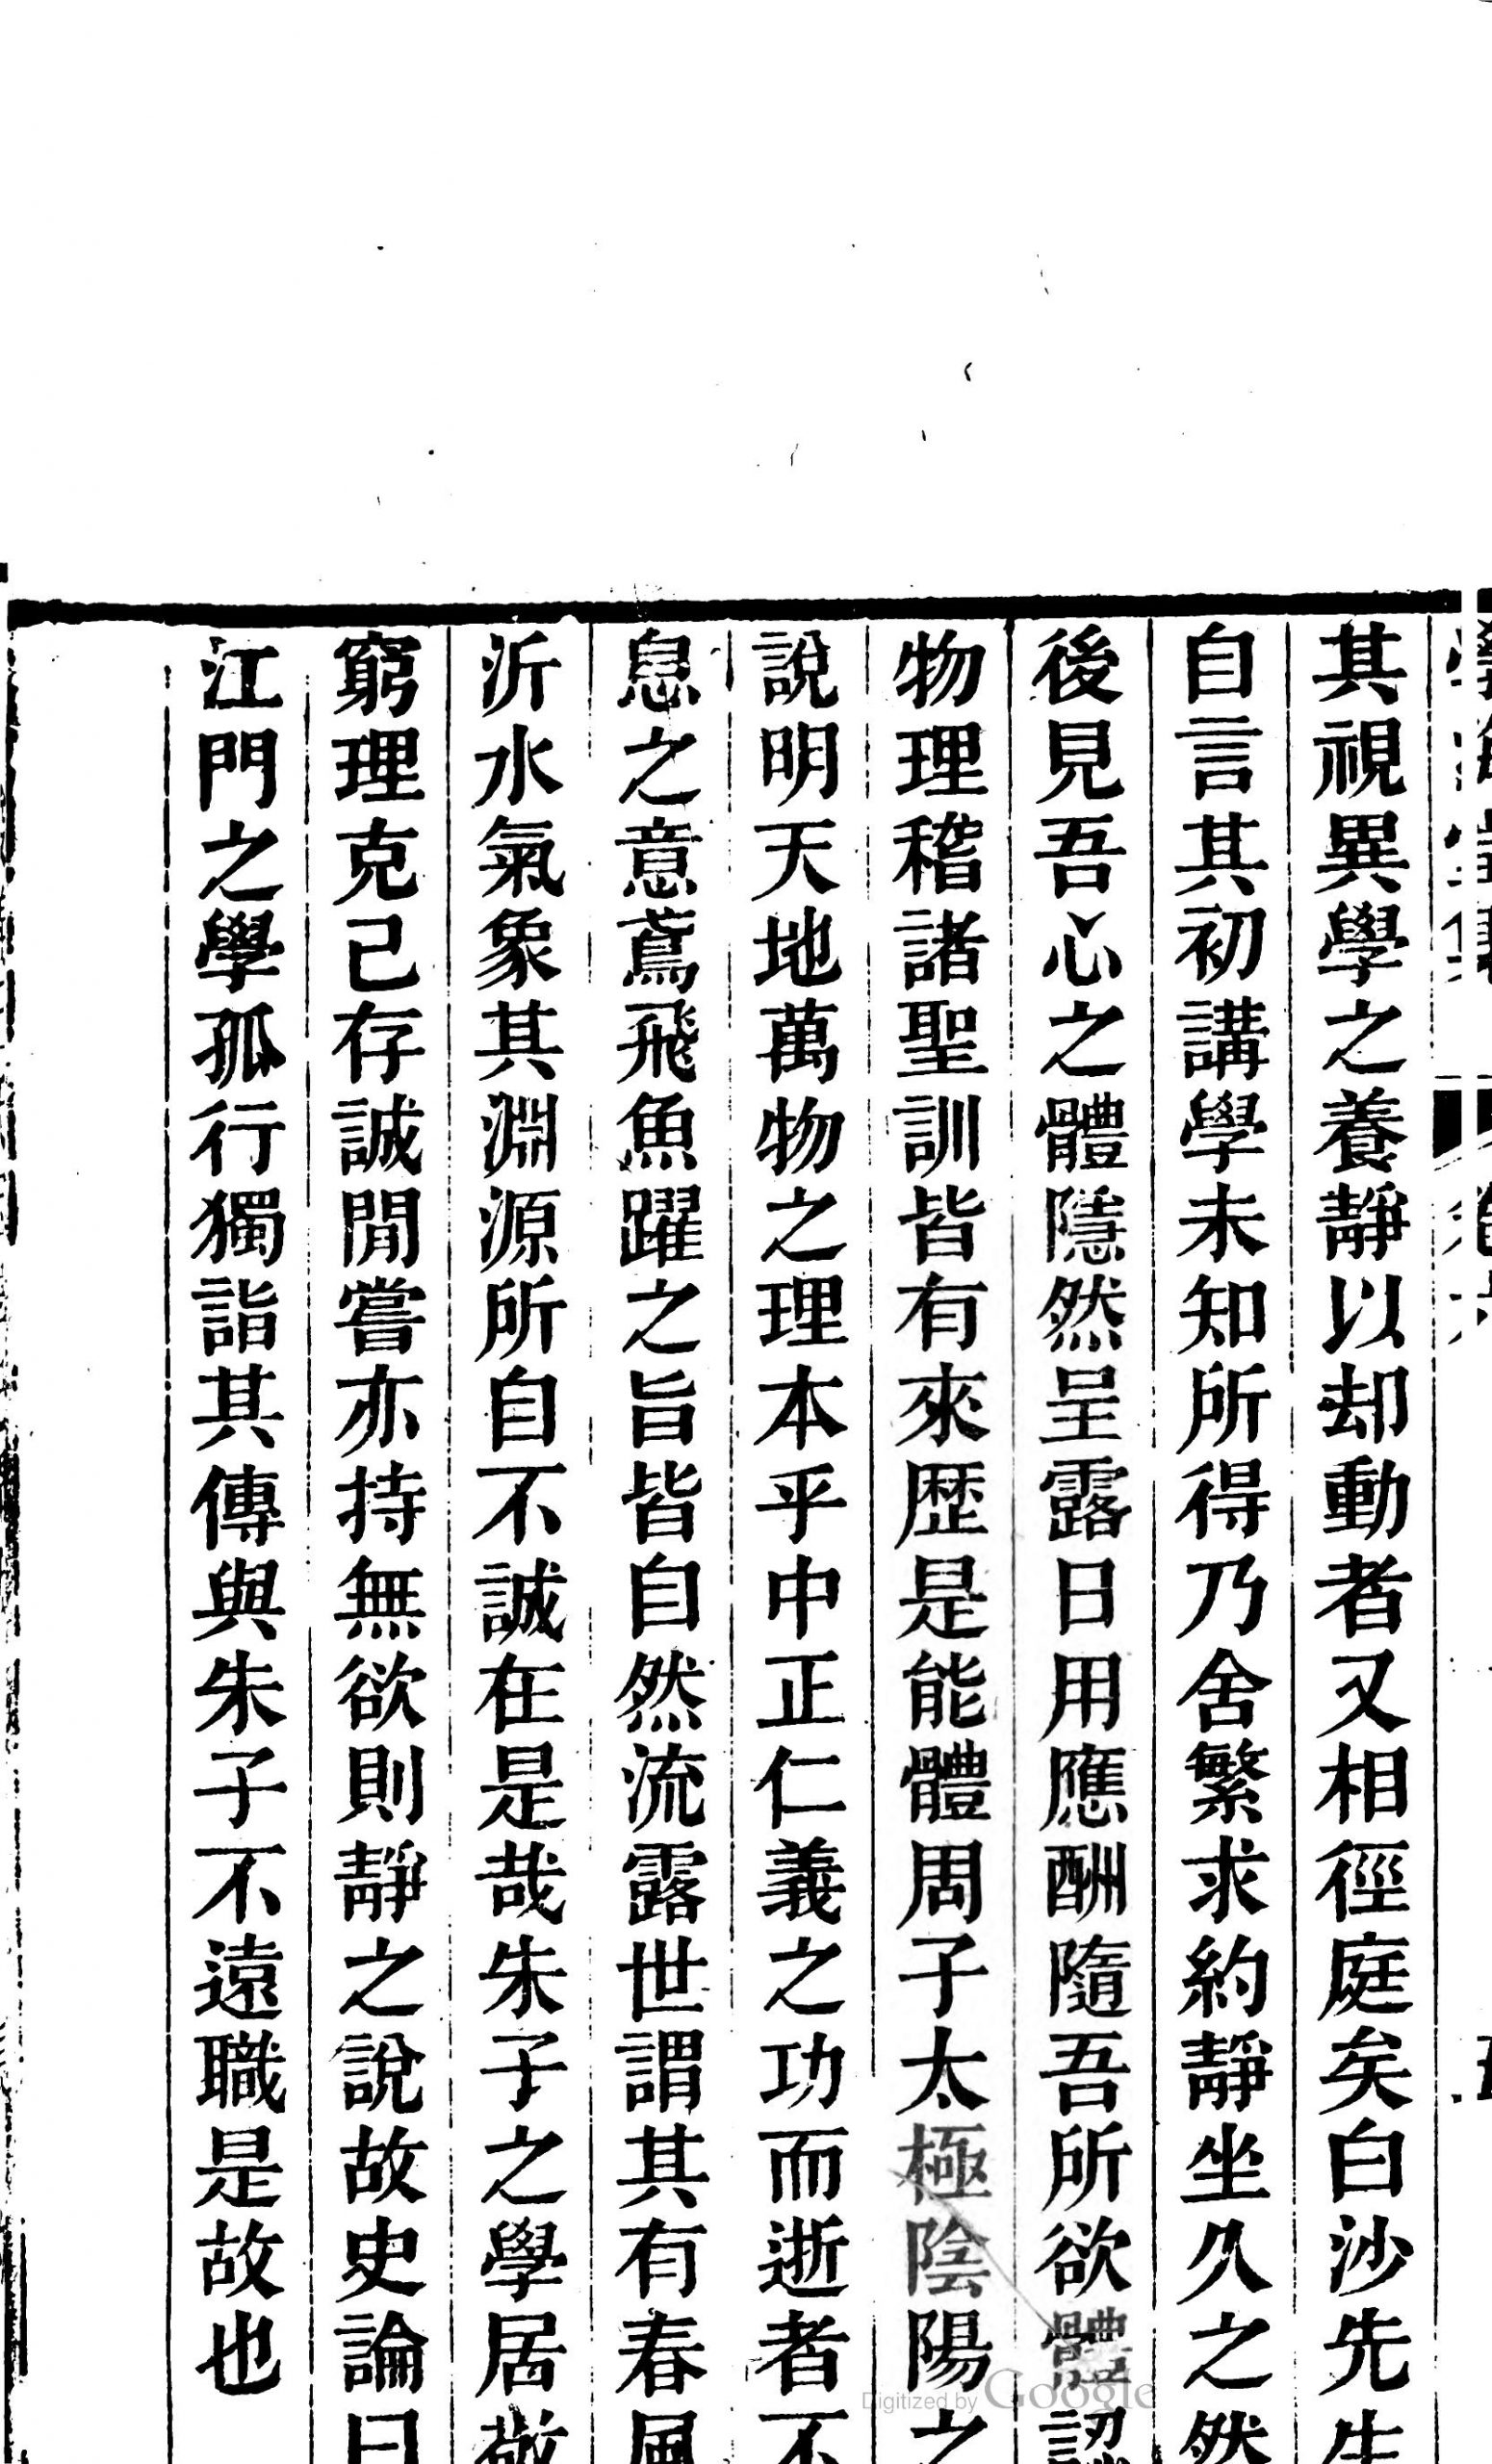 其視異學之養靜以却動者又相徑庭矣白沙先生
自言其初講學未知所得乃舍繁求約靜坐久之然
後見吾心之體隱然呈露日用應酬隨吾所欲體認
物理稽諸聖訓皆有來歴是能體周子太極陰陽之
說明天地萬物之理本乎中正仁義之功而逝者不
息之意鳶飛魚躍之旨皆自然流露世謂其有春風
沂水氣象其淵源所自不誠在是哉朱子之學居敬
窮理克己存誠閒嘗亦持無欲則靜之說故史論曰
江門之學孤行獨詣其傳與朱子不遠職是故也
Digitized by Google